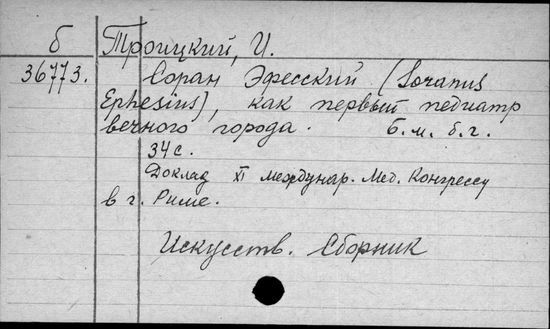 б Троицкий, И.
36773. Соран Эфесский (Soranus
Ephesius), как первый педиатр
вечного города. Б.м. б.г.
34 с.
Доклад XI междунар. Мед. Конгрессу
в г. Риме.
Искусств. Сборник